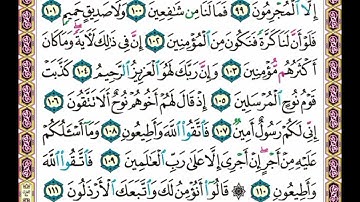 إِلَّا ٱلْمُجْرِمُونَ ٩٩ فَمَا لَنَا مِن شَٰفِعِينَ ١٠٠ وَلَا صَدِيقٍ حَمِيمٍ ١٠١
فَلَوْ أَنَّ لَنَا كَرَّةً فَنَكُونَ مِنَ ٱلْمُؤْمِنِينَ ١٠٢ إِنَّ فِى ذَٰلِكَ لَأٓيَةً ۖ وَمَا كَانَ
أَكْثَرُهُم مُّؤْمِنِينَ ١٠٣ وَإِنَّ رَبَّكَ لَهُوَ ٱلْعَزِيزُ ٱلرَّحِيمُ ١٠٤ كَذَّبَتْ
قَوْمُ نُوحٍ ٱلْمُرْسَلِينَ ١٠٥ إِذْ قَالَ لَهُمْ أَخُوهُمْ نُوحٌ أَلَا تَتَّقُونَ ١٠٦
إِنِّى لَكُمْ رَسُولٌ أَمِينٌ ١٠٧ فَٱتَّقُوا۟ ٱللَّهَ وَأَطِيعُونِ ١٠٨ وَمَآ أَسْـَٔلُكُمْ
عَلَيْهِ مِنْ أَجْرٍ ۖ إِنْ أَجْرِىَ إِلَّا عَلَىٰ رَبِّ ٱلْعَٰلَمِينَ ١٠٩ فَٱتَّقُوا۟ ٱللَّهَ
وَأَطِيعُونِ ١١٠ ۞ قَالُوٓا۟ أَنُؤْمِنُ لَكَ وَٱتَّبَعَكَ ٱلْأَرْذَلُونَ ١١١